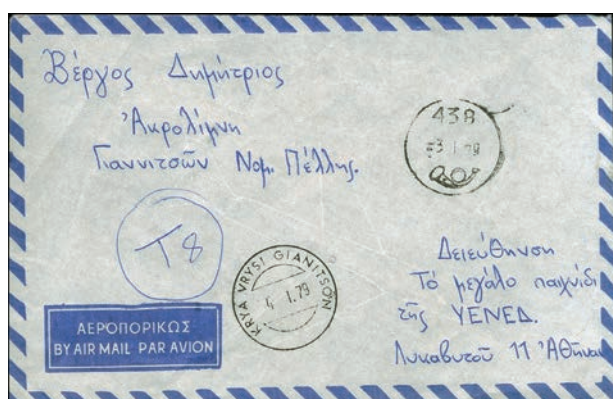 Βέργος Δημήτριος
Ἀκρολίμνη
Γιαννιτσῶν Νομ. Πέλλης.
438
3 1 79
T8
KRYA VRYSI GIANITSON
4. 1. 79
ΑΕΡΟΠΟΡΙΚΩΣ
BY AIR MAIL PAR AVION
Δειεύθηνση
Τό μεγάλο παιχνίδι
τῆς ΥΕΝΕΔ.
Λυκαβυτοῦ 11 Ἀθῆναι